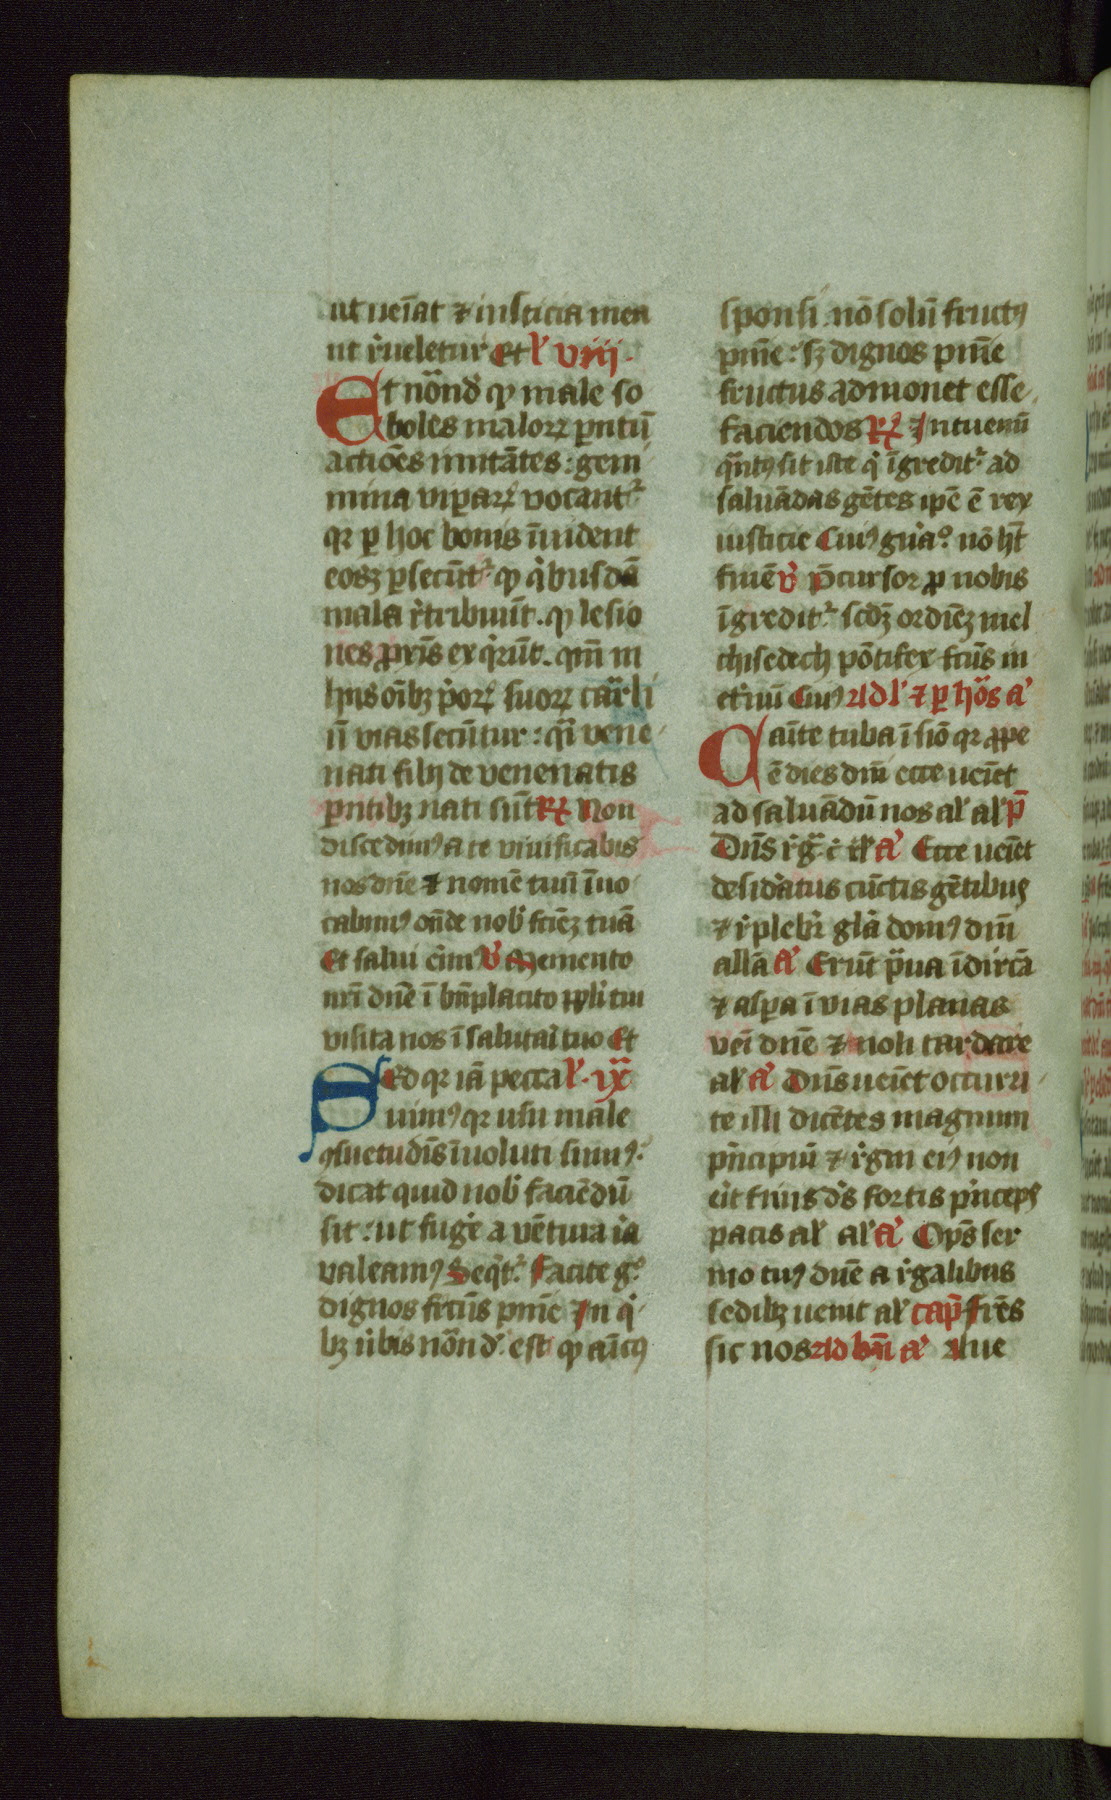 ut ueīat ⁊ iusticia mea
ut r̄ueletur Et l' viij.
Et nōnd' qͥ male so
boles maloꝝ pntū
actiōes imitātes : gem
mina viꝑaꝝ vocant᷑
qꝛ ꝑ hoc bonis īuident
eosꝫ ꝑsecūt᷑ qͥ qͥbusdā
mala r̄tribuūt. qͥ lesio
nes ꝓxīs exqͥrūt. qm̄ in
hijs oībꝫ pͥoꝝ suoꝝ carͣli
ū vias secūtur : qͣi vene
nati filij de venenatis
pntibꝫ nati sūt R⸱ Non
discedimꝰ a te viuificabis
nos dn̄e ⁊ nomē tuū īuo
cabimꝰ on̄de nob' fciēꝫ tuā
Et salui erimꝰ v̄ Memento
nrī dn̄e ī bn̄placito ppl'i tui
visita nos ī salutai tuo Et
Sed qꝛ iā pecca l'. ix
uimꝰ qꝛ usu male
ꝯsuetudīs īuoluti sumꝰ
dicat quid nob' faciēdū
sit : ut fuge a vētura ira
valeamꝰ Seqͥt᷑ Facite gͦ
dignos frctūs pnīe In qͥ
bꝫ ūbis nōnd' est qͥ amīcꝰ
sponsi nō solū fructꝰ
pnīe : sꝫ dignos pnīe
fructus admonet esse
faciendos R⸱ Intuemī
qͣntꝰ sit iste qͥ īgredit᷑ ad
saluādas gētes ipē ē rex
iusticie Cuiꝰ gn̄aͦ nō hꝫ
finē v̄ Pͤcursor ꝓ nobis
īgredit᷑ scdꝫ ordiēꝫ mel
chisedech pōtifex fcūs in
et'nū Cuiꝰ Ad l' ⁊ ꝑ hōs a'
Canīte tuba ī siō qꝛ ꝓpe
ē dies dnī ecce ueīet
ad saluādū nos al' al' p̄
Dn̄s r̄gͣ ē a' Ecce ueīet
desid'atus cūctis gētibus
⁊ r̄plebiͬ gl'a domꝰ dnī
all'a a' Erūt pͣua ī dircā
⁊ asꝑa ī vias planas
vei dn̄e ⁊ noli tardare
al' a' Dn̄s ueīet occurri
te illi dicētes magnum
pͥncipiū ⁊ r̄gni eiꝰ non
e'it finis d's fortis pͥnceps
pacis al' al' a' Op̄s ser
mo tuꝰ dn̄e a r̄galibus
sedibꝫ uenit al' cap̄ Frēs
sic nos Ad bn̄ a' Aue